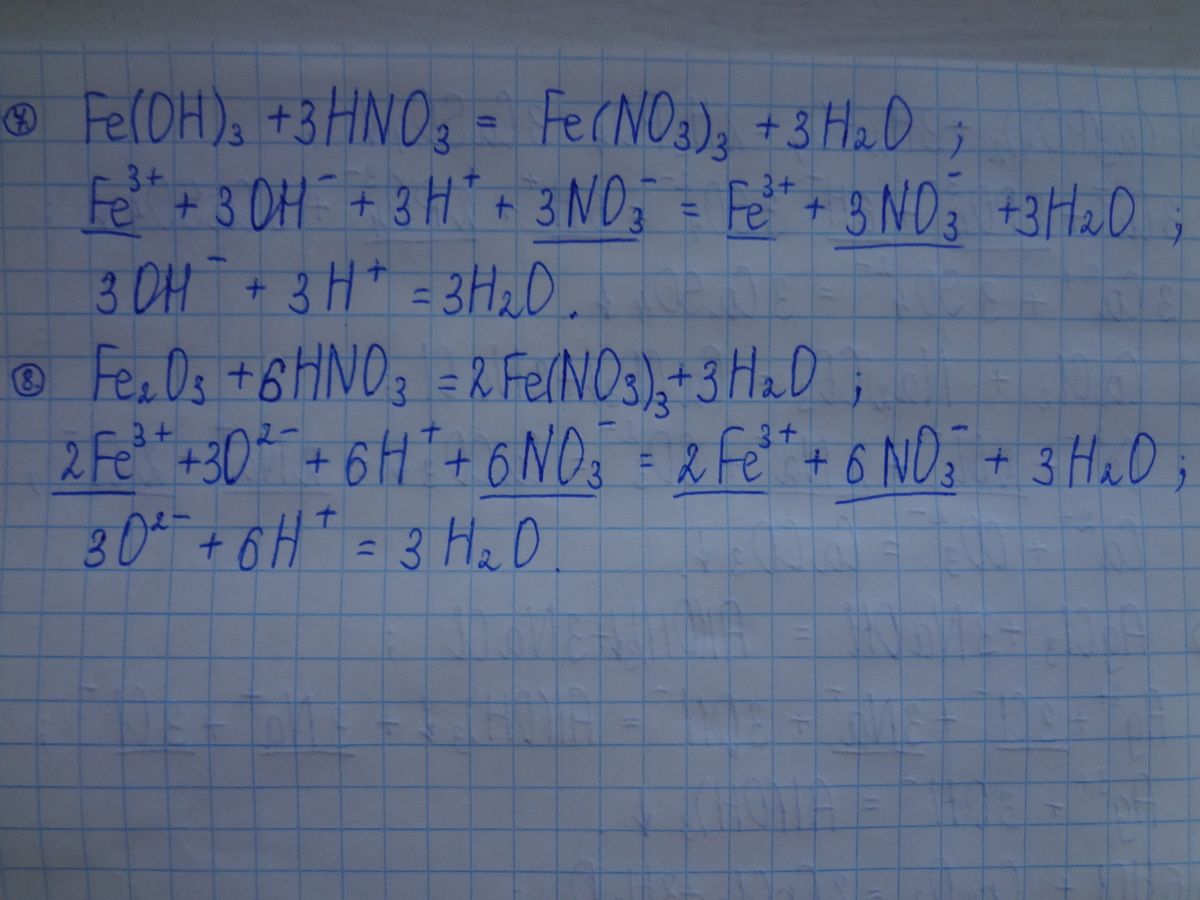 7. Fe(OH)₃ + 3HNO₃ = Fe(NO₃)₃ + 3H₂O ;
Fe³⁺ + 3OH⁻ + 3H⁺ + 3NO₃⁻ = Fe³⁺ + 3NO₃⁻ + 3H₂O ;
3OH⁻ + 3H⁺ = 3H₂O .
8. Fe₂O₃ + 6HNO₃ = 2Fe(NO₃)₃ + 3H₂O ;
2Fe³⁺ + 3O²⁻ + 6H⁺ + 6NO₃⁻ = 2Fe³⁺ + 6NO₃⁻ + 3H₂O ;
3O²⁻ + 6H⁺ = 3H₂O .